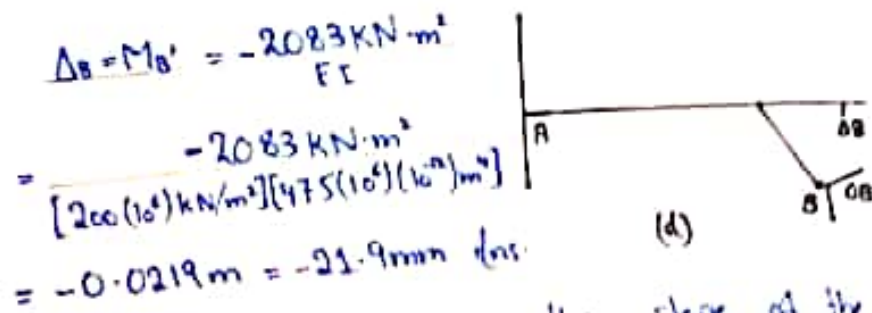 ΔB = MB' = -2083 KN·m²
EI
= -2083 KN·m²
[200(10⁶) kN/m²][475(10⁶)(10⁻¹²)m⁴]
= -0.0219m = -21.9mm Ans.
A
ΔB
B
θB
(d)
slope of the